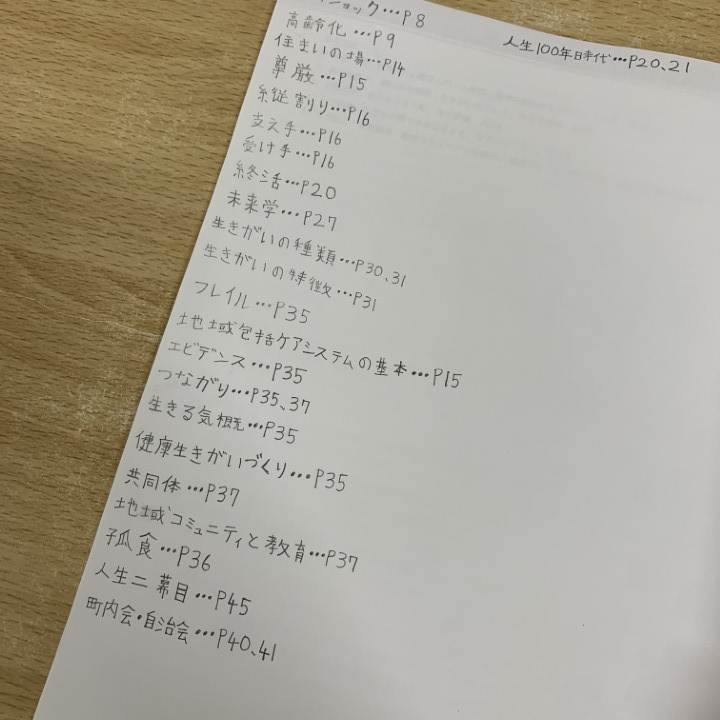 ショック…P8
高齢化…P9
住まいの場…P14
尊厳…P15
縦割り…P16
支え手…P16
受け手…P16
終活…P20
未来学…P27
生きがいの種類…P30、31
生きがいの特徴…P31
フレイル…P35
地域包括ケアシステムの基本…P15
エビデンス…P35
つながり…P35、37
生きる気概…P35
健康生きがいづくり…P35
共同体…P37
地域コミュニティと教育…P37
孤食…P36
人生二幕目…P45
町内会・自治会…P40、41
人生100年時代…P20、21